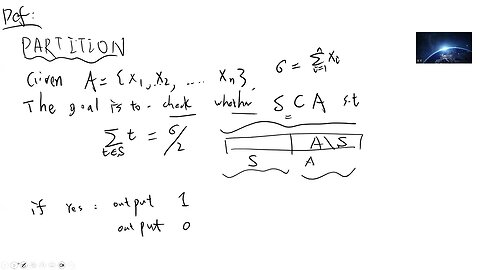 Def:
PARTITION
Given A = {x₁, x₂, .... xₙ}. σ = ∑ᵢ₌₁ⁿ xᵢ
The goal is to check whether S ⊂ A s.t
∑_{t∈S} t = σ/2
A\S
S A
if Yes: output 1
output 0